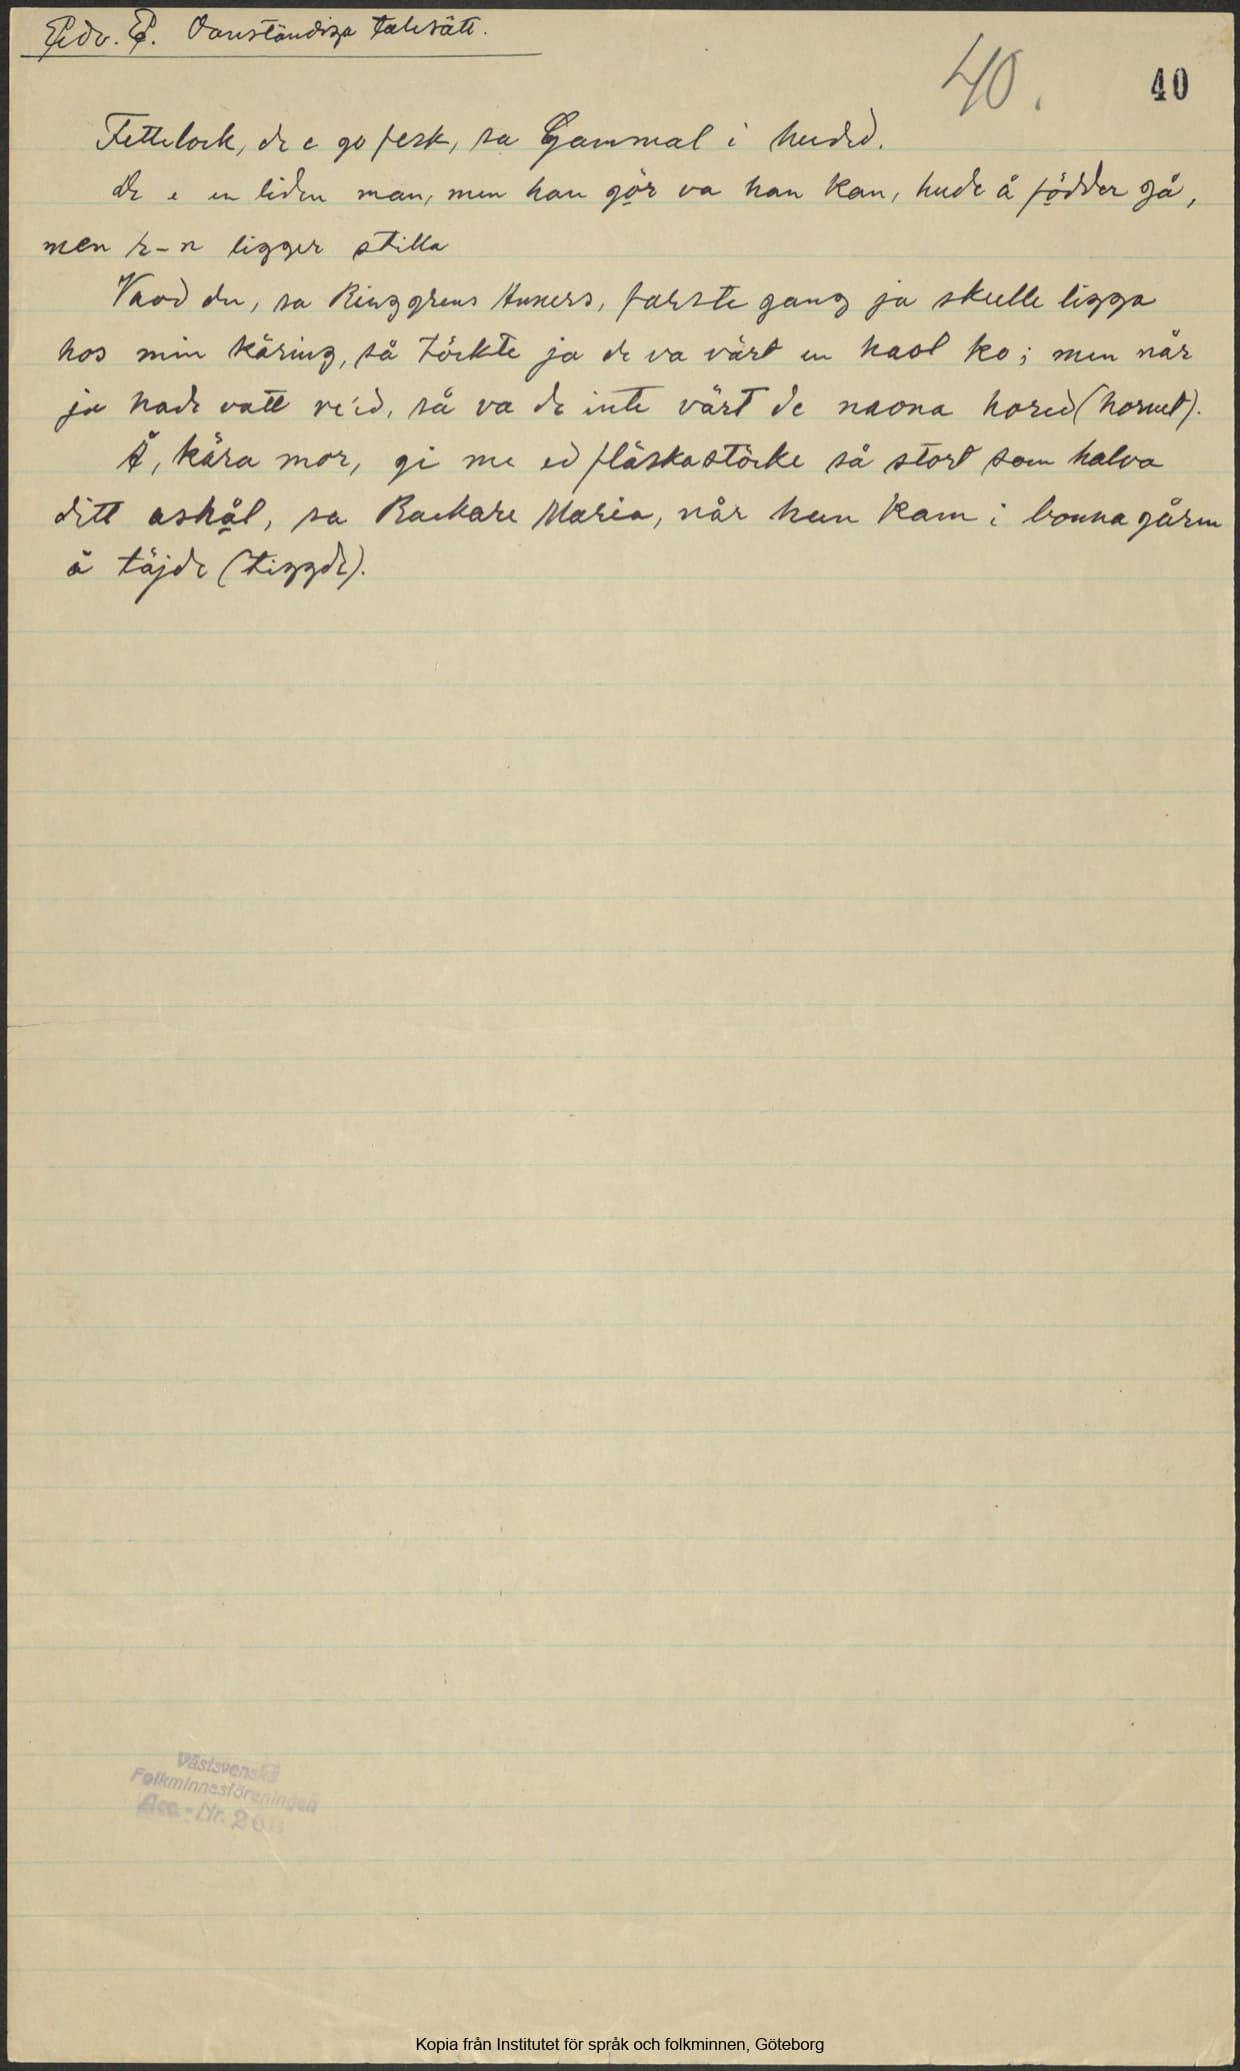 Edv. E. Oanständiga talesätt.
40. 40
Fettelock, de e go fesk, sa Gammal i huded.
De e en liden man, men han gör va han kan, hude å födder gå,
men r-n ligger stilla
Vaod du, sa Ringgrens Anners, farste gang ja skulle ligga
hos min käring, så töckte ja de va värt en haol ko; men når
ja hade vatt ve'd, så va de inte värt de naona hored (hornet).
Å, kära mor, gi me ed fläskastöcke så stort som halva
ditt ashål, sa Backare Maria, når hun kam i bonnagåren
å täjde (tiggde).
Västsvenska
Folkminnesföreningen
Acc.-Nr.
Kopia från Institutet för språk och folkminnen, Göteborg